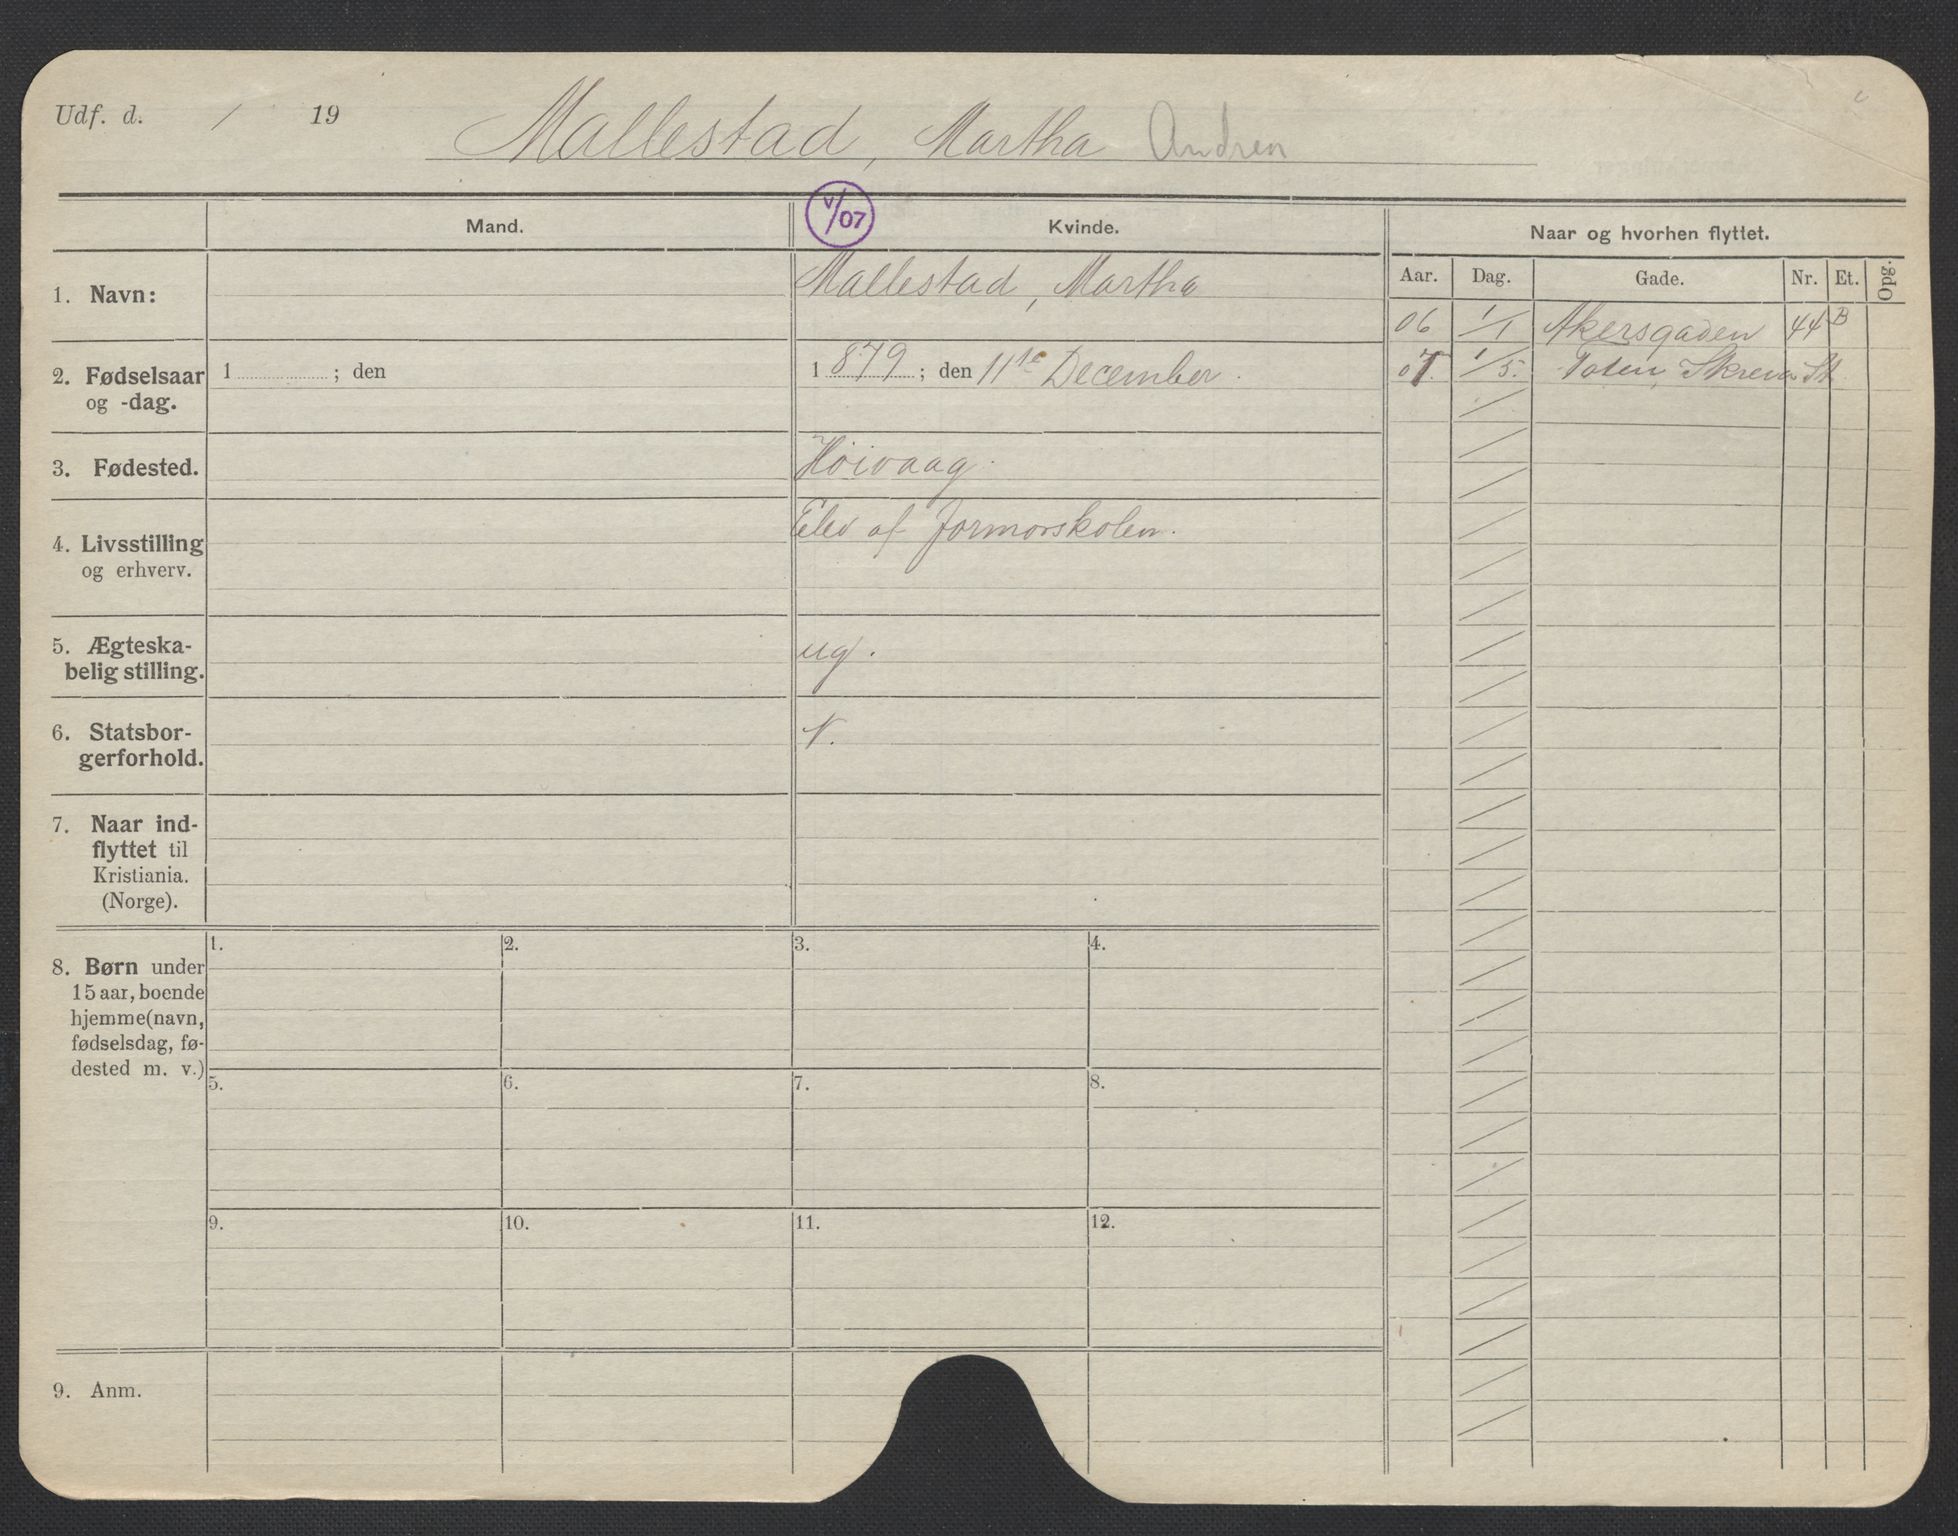 Udf. d. / 19
Mallestad, Martha Andren
Mand.
V/07
Kvinde.
Naar og hvorhen flyttet.
Aar. Dag. Gade. Nr. Et. Opg.
1. Navn:
Mallestad, Martha
06 1/1 Akersgaden 44 B
07. 1/5. Toten, Skreia St.
2. Fødselsaar
og -dag.
1 ; den
1 879 ; den 11te December.
3. Fødested.
Høivaag.
4. Livsstilling
og erhverv.
Elev af Jormorskolen.
5. Ægteska-
belig stilling.
ug.
6. Statsbor-
gerforhold.
N.
7. Naar ind-
flyttet til
Kristiania.
(Norge).
8. Børn under
15 aar, boende
hjemme (navn,
fødselsdag, fø-
dested m. v.)
1. 2. 3. 4.
5. 6. 7. 8.
9. 10. 11. 12.
9. Anm.